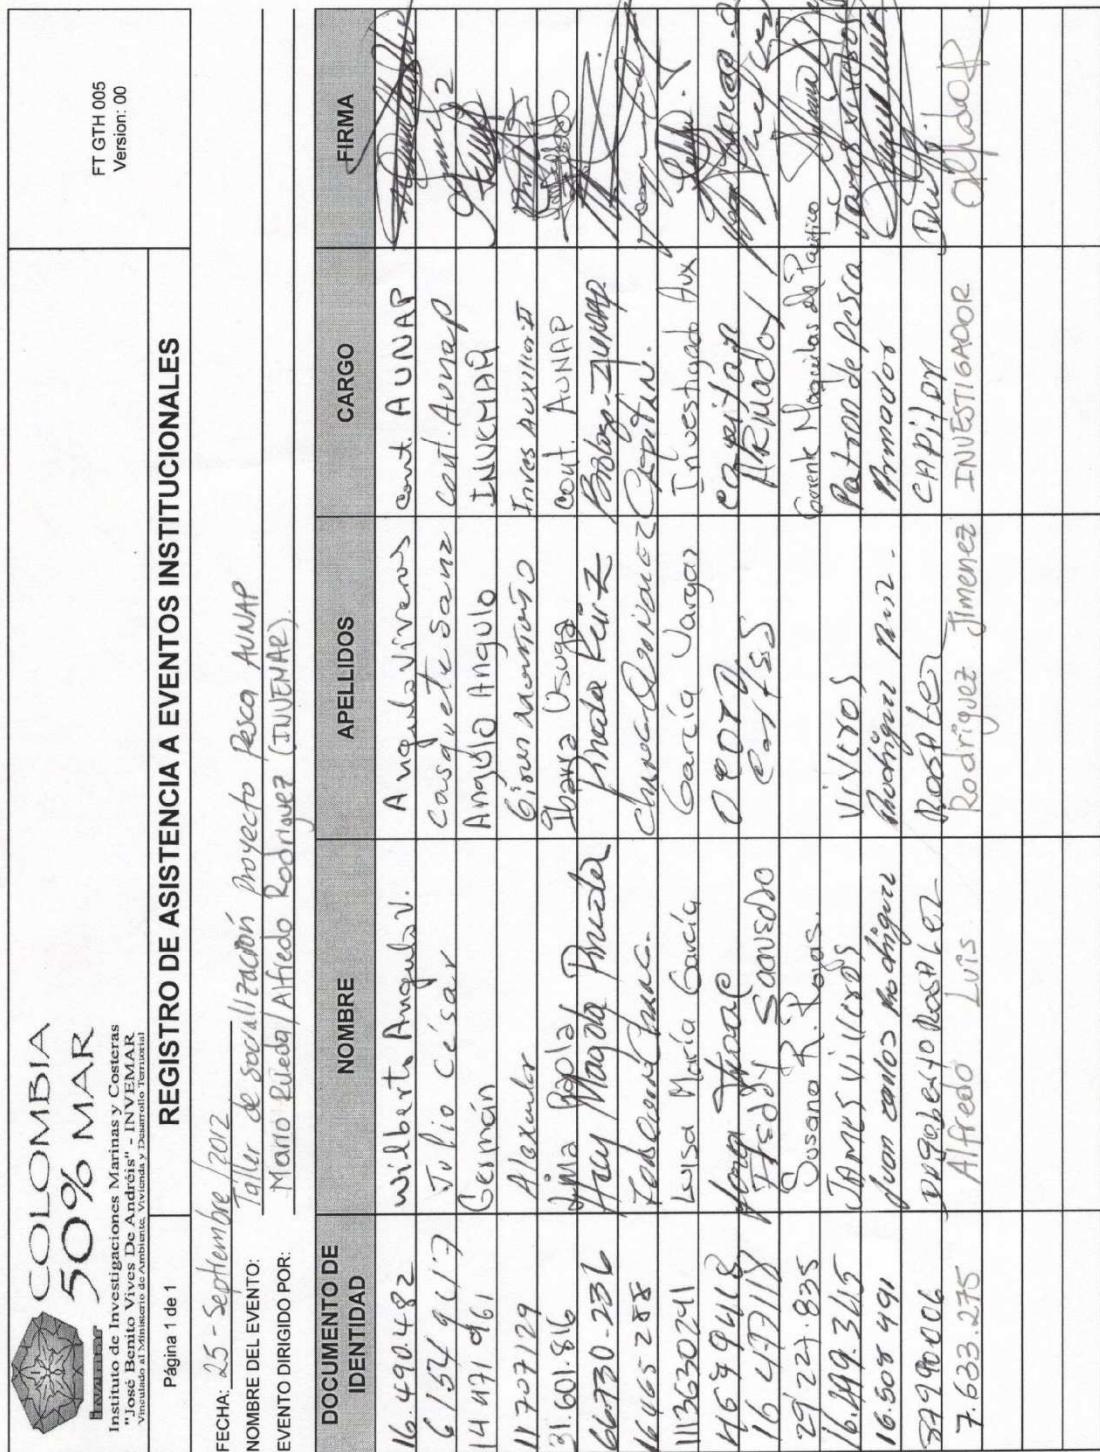 COLOMBIA
50% MAR
INVEMAR
Instituto de Investigaciones Marinas y Costeras
"José Benito Vives De Andréis" - INVEMAR
Vinculado al Ministerio de Ambiente, Vivienda y Desarrollo Territorial
FT GTH 005
Version: 00
Página 1 de 1
REGISTRO DE ASISTENCIA A EVENTOS INSTITUCIONALES
FECHA: 25-Septiembre/2012
NOMBRE DEL EVENTO: Taller de Socialización Proyecto Pesca AUNAP
EVENTO DIRIGIDO POR: Mario Rueda/Alfredo Rodriguez (INVEMAR).
DOCUMENTO DE IDENTIDAD NOMBRE APELLIDOS CARGO FIRMA
16.490.482 Wilberto Angulo V. Angulo Viveros cont. AUNAP
6154947 Julio César Casquete Sanz cont. Aunap
14471961 Germán Angulo Angulo INVEMAR
11707129 Alexander Inves Auxiliar-I
31.601.816 Paola Ibarra Usuga Cont. AUNAP
66730-236 Magda Pineda Pineda Ruiz
16465288 Capitan.
1113630241 Luisa María García García Vargas Investigado Aux
Capitan
16477118 Freddy Saavedro Cortes Armador
29'227.835 Susana R. Rojas. Gerente Maquilas del Pacifico
6.499.345 James Viveros Viveros Patron de Pesca
16.508491 Juan carlos Rodriguez Rodriguez Armador
Dagoberto Rosales Rosales CAPITAN
7.633.275 Alfredo Luis Rodriguez Jimenez INVESTIGADOR